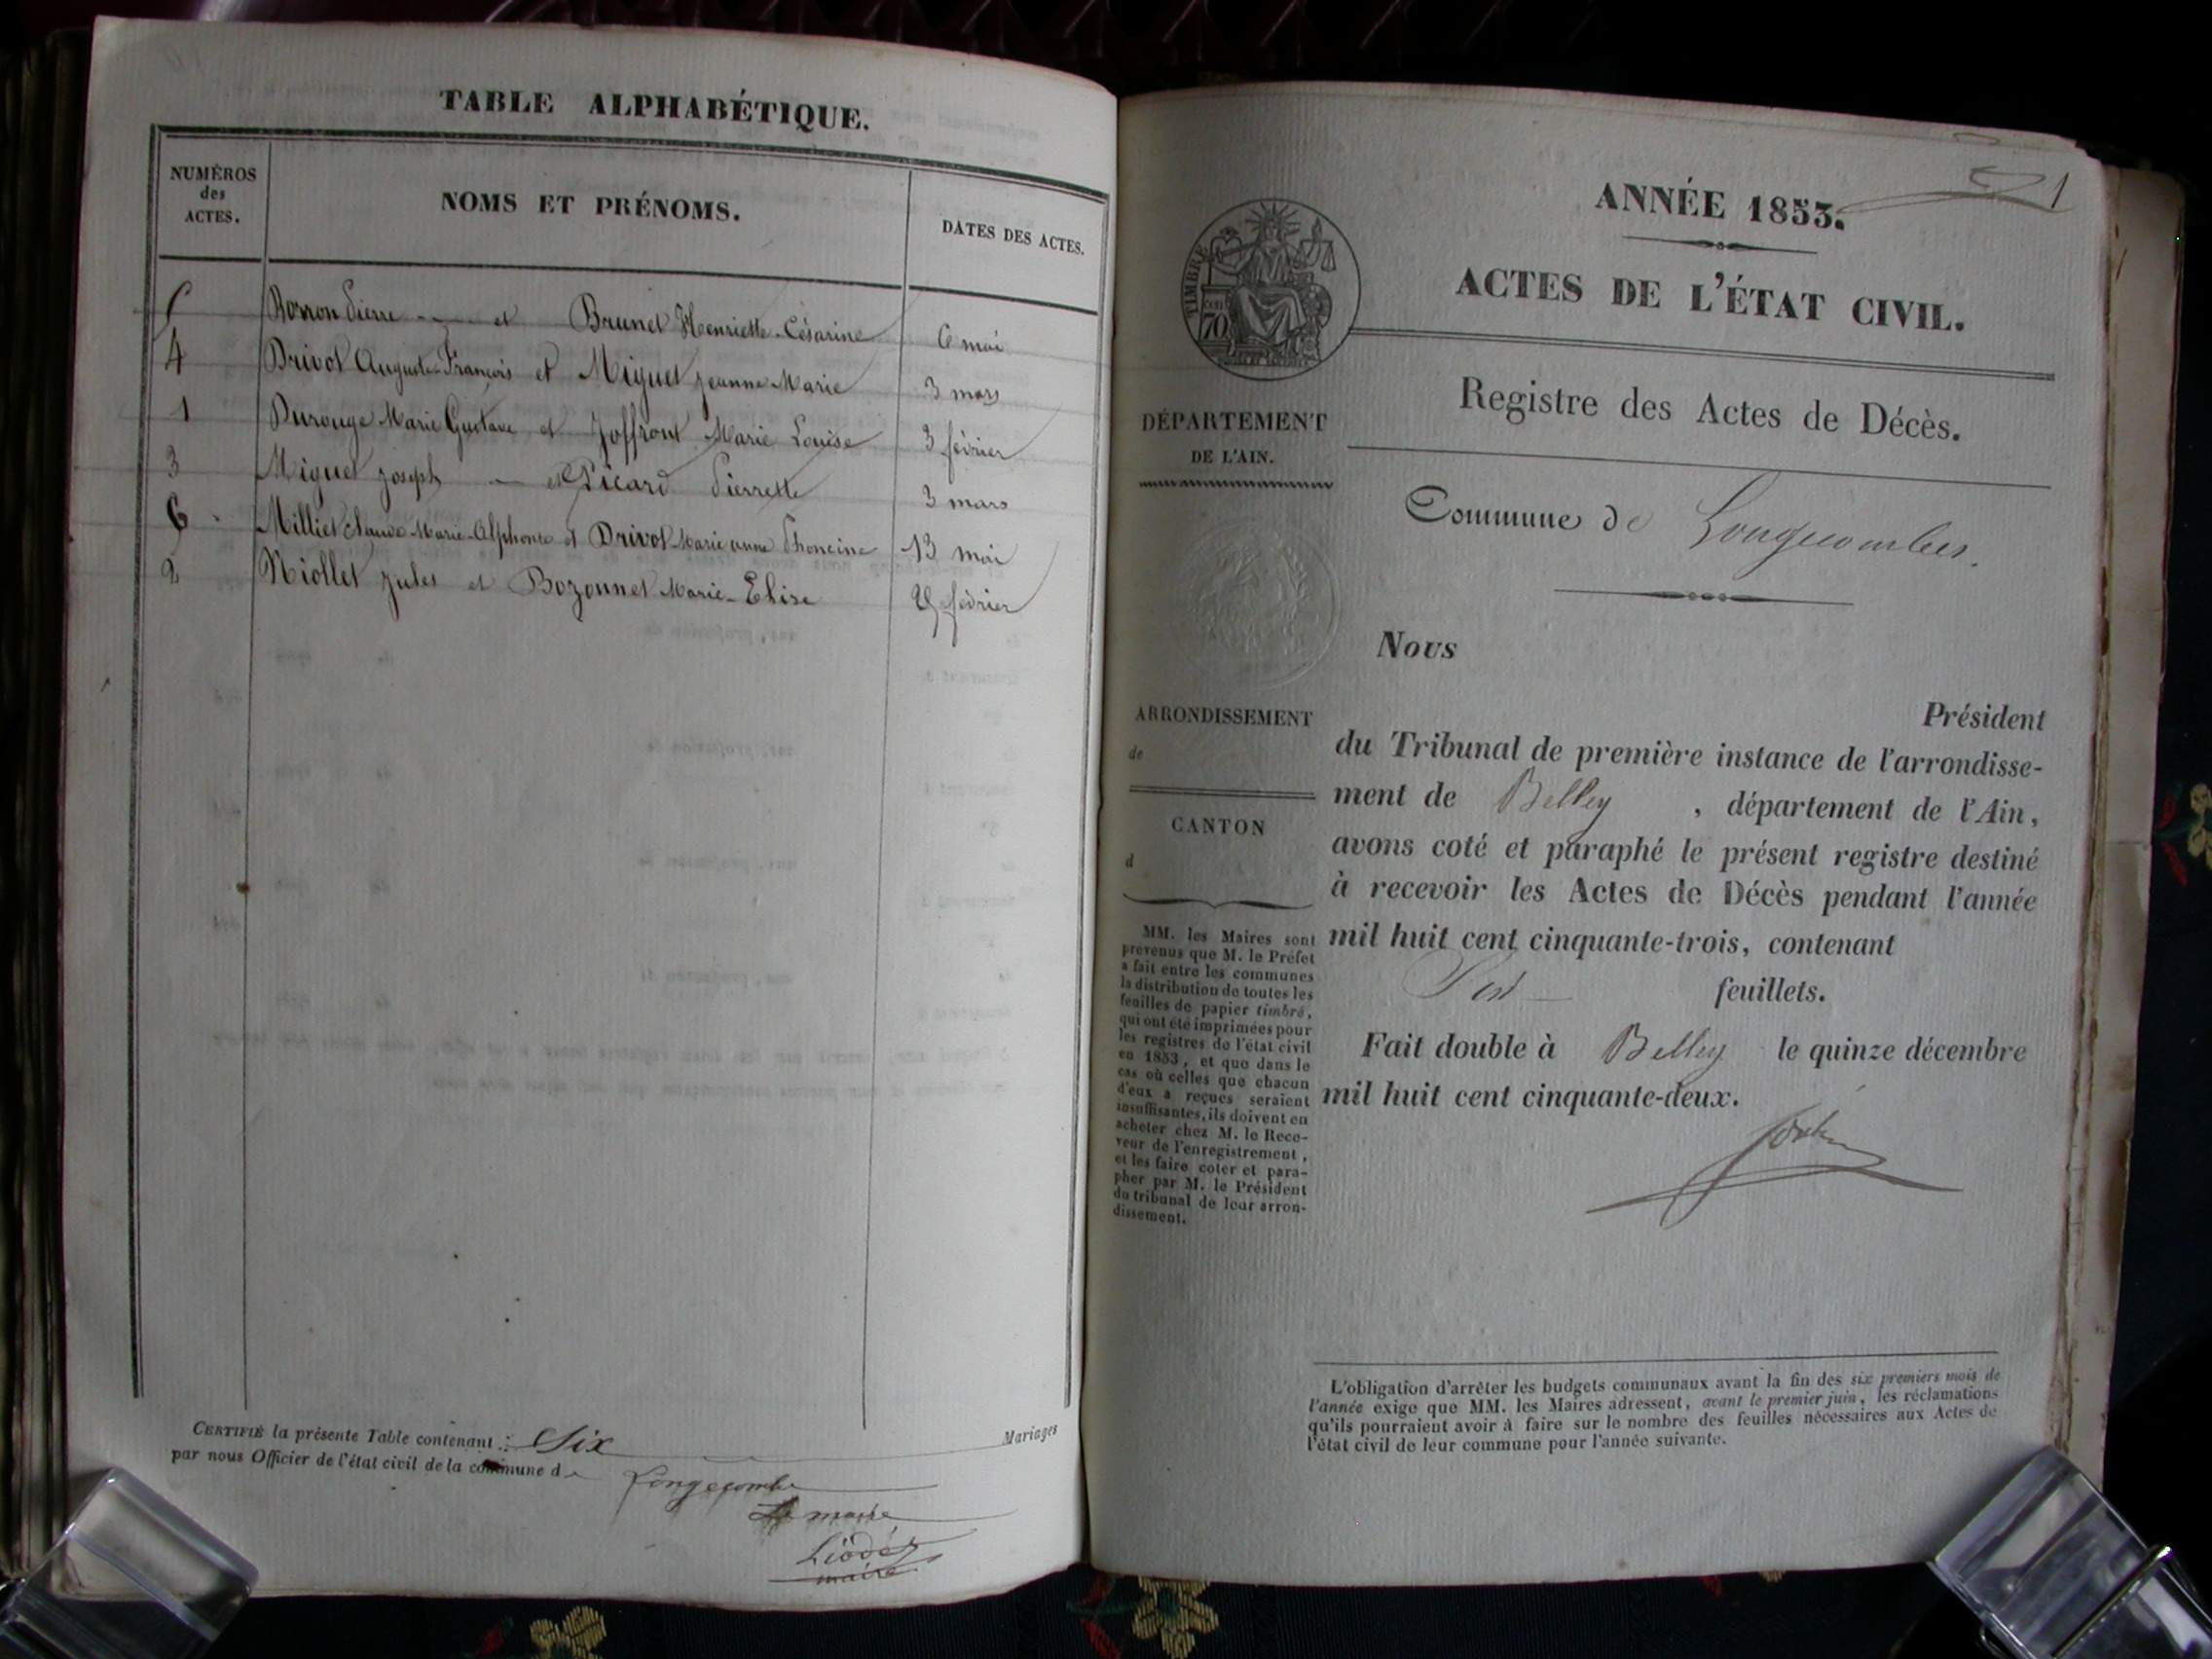 TABLE ALPHABÉTIQUE.
NUMÉROS
des
ACTES.
NOMS ET PRÉNOMS.
DATES DES ACTES.
5 Borron Pierre et Brunet Henriette-Césarine 6 mai
4 Drivot Auguste-François et Miguet jeanne Marie 3 mars
1 Durouge Marie Gustave et Joffront Marie Louise 3 février
3 Miguet joseph et Picard Pierrette 3 mars
6 Milliet Claude-Marie-Alphonse et Drivot Marie anne 13 mai
2 Niollet jules et Bozonnet Marie-Elise février
CERTIFIÉ la présente Table contenant : Six Mariages
par nous Officier de l'état civil de la commune de Longecombe
Le maire
maire
1
ANNÉE 1853.
ACTES DE L'ÉTAT CIVIL.
TIMBRE
70
Registre des Actes de Décès.
DÉPARTEMENT
DE L'AIN.
Commune de Longecombes.
Nous
Président
ARRONDISSEMENT
de
du Tribunal de première instance de l'arrondisse-
ment de Belley , département de l'Ain,
CANTON
d
avons coté et paraphé le présent registre destiné
à recevoir les Actes de Décès pendant l'année
mil huit cent cinquante-trois, contenant
feuillets.
Fait double à Belley le quinze décembre
mil huit cent cinquante-deux.
MM. les Maires sont
prévenus que M. le Préfet
a fait entre les communes
la distribution de toutes les
feuilles de papier timbré,
qui ont été imprimées pour
les registres de l'état civil
en 1853, et que dans le
cas où celles que chacun
d'eux a reçues seraient
insuffisantes, ils doivent en
acheter chez M. le Rece-
veur de l'enregistrement,
et les faire coter et para-
pher par M. le Président
du tribunal de leur arron-
dissement.
L'obligation d'arrêter les budgets communaux avant la fin des six premiers mois de
l'année exige que MM. les Maires adressent, avant le premier juin, les réclamations
qu'ils pourraient avoir à faire sur le nombre des feuilles nécessaires aux Actes de
l'état civil de leur commune pour l'année suivante.